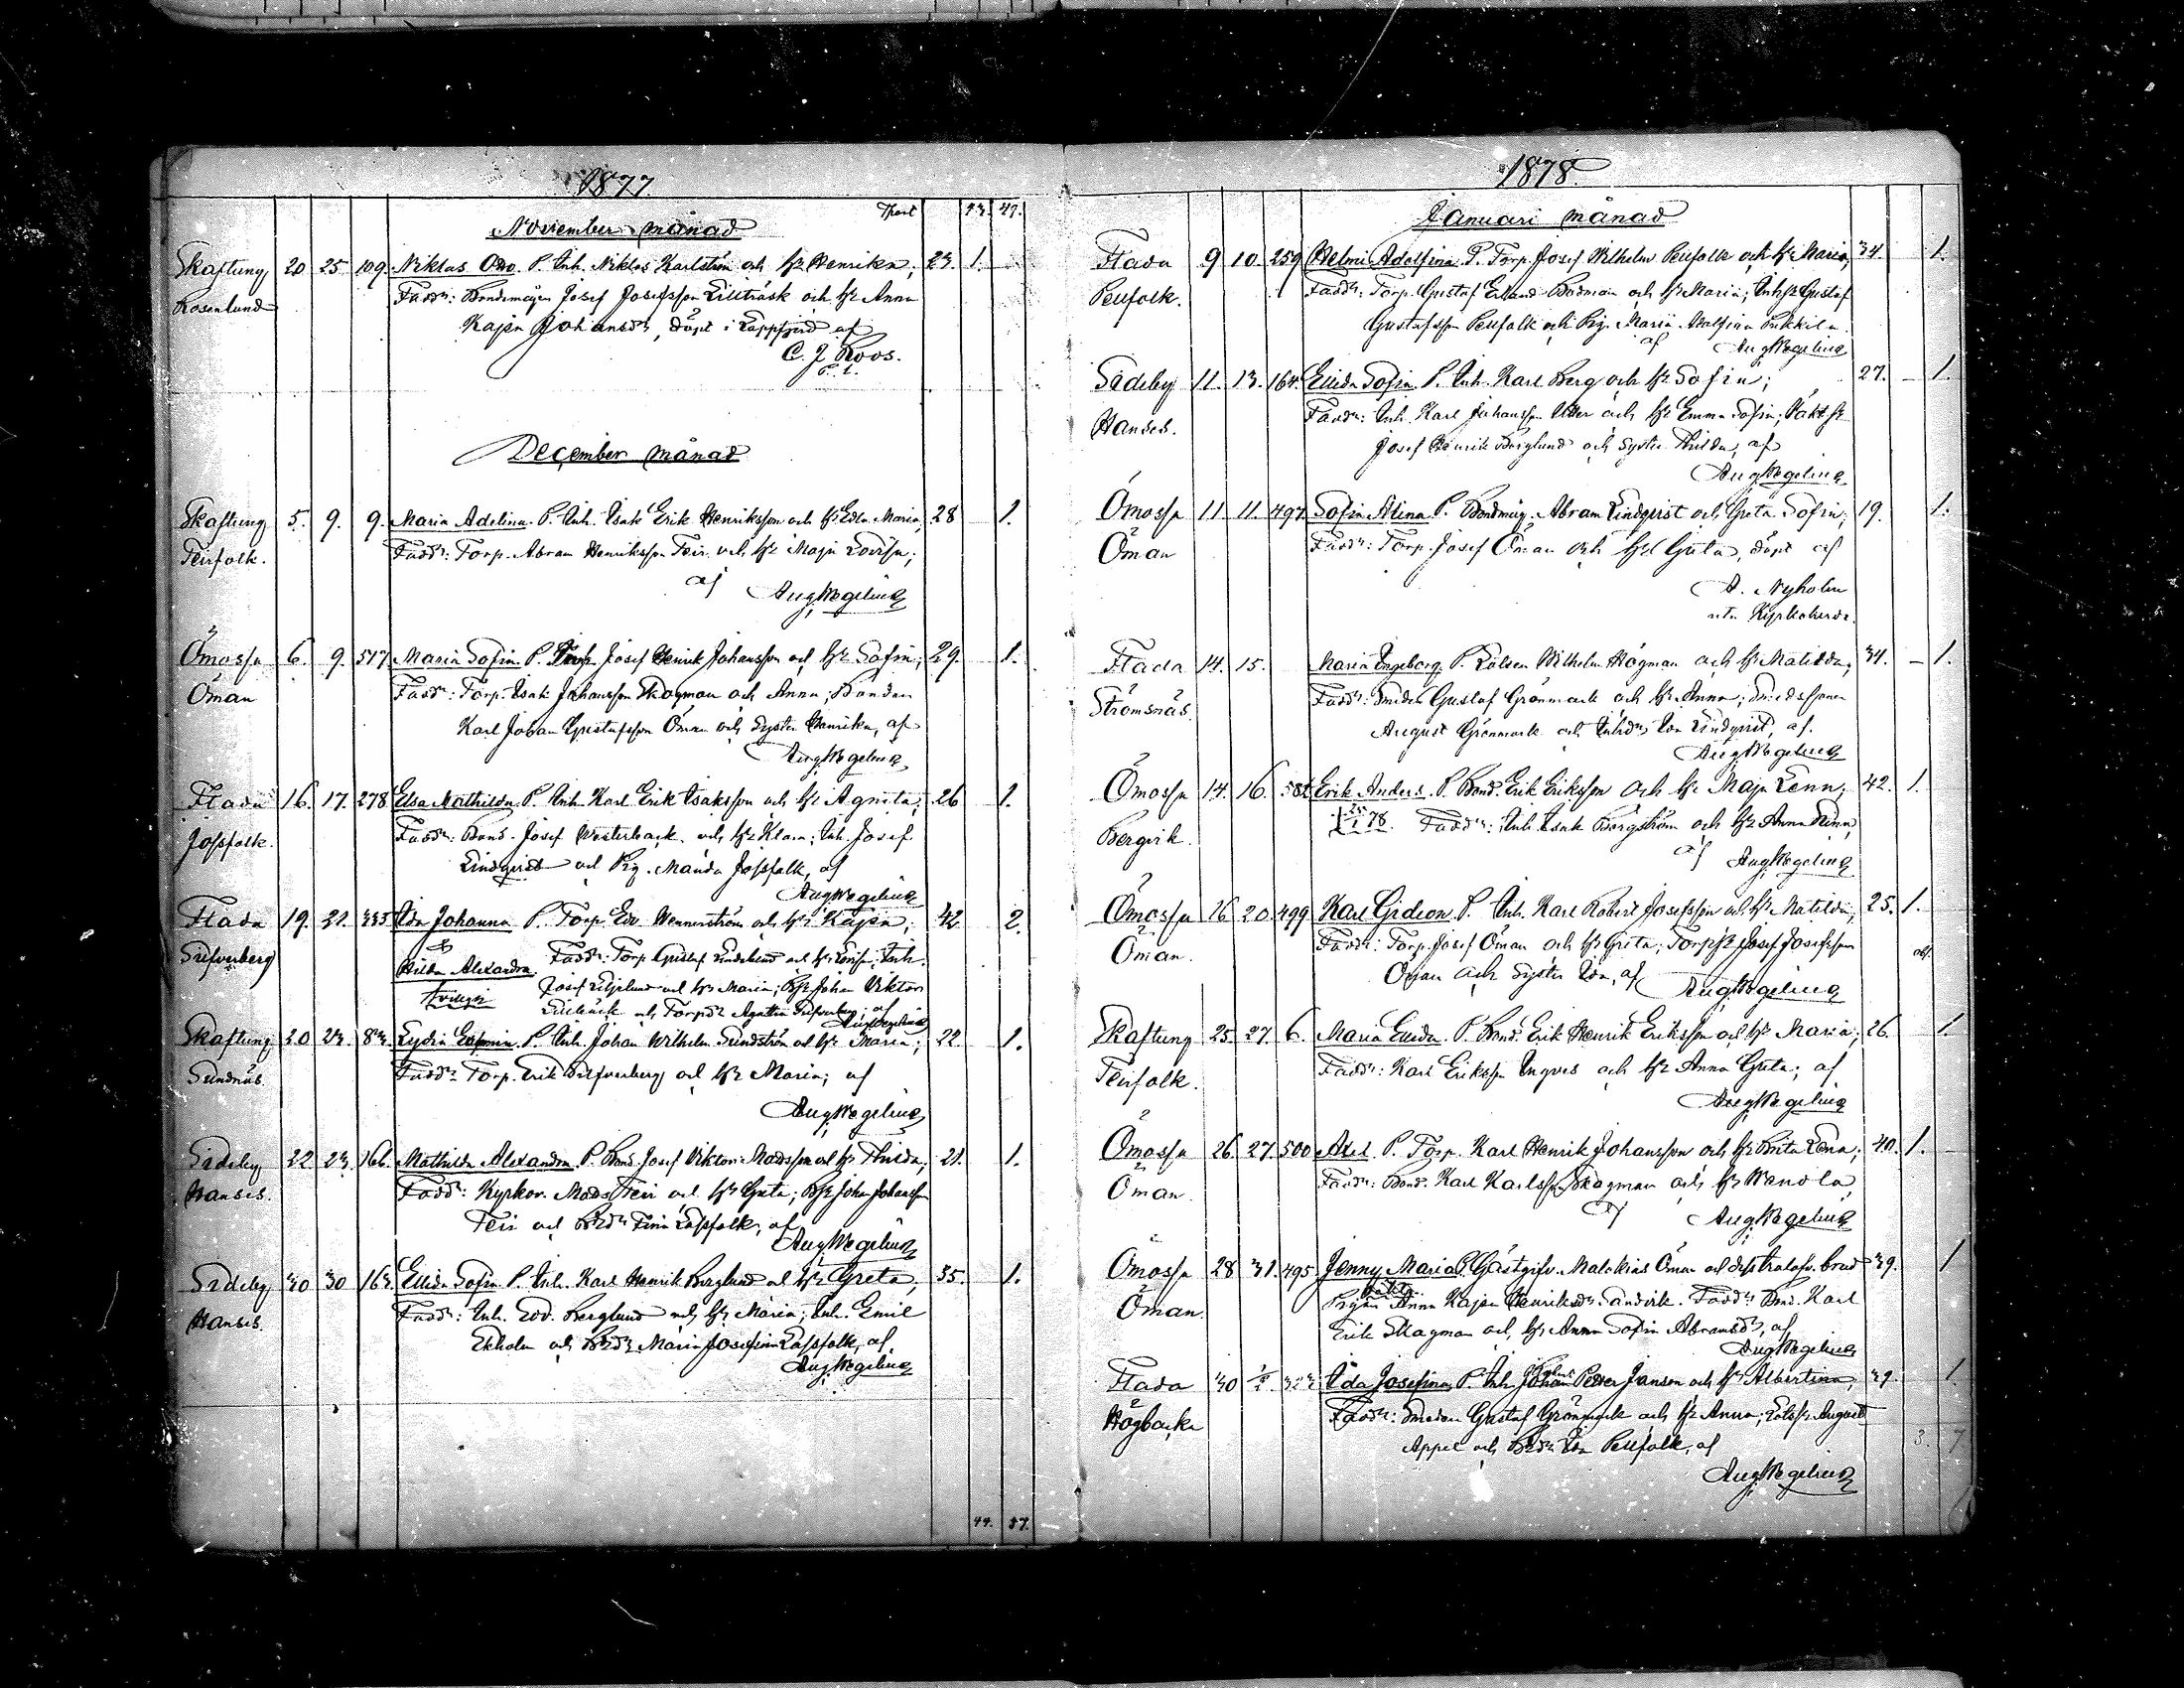 1877.
Thart 43. 49.
November månad
Skaftung 20 25. 109. Niklas Otto. P. Inh. Niklas Karlström och h:u Henrika; 23. 1.
Rosenlund Fadd:r: Bondemågen Josef Josefsson Lillträsk och h:u Anna
Kajsa Johansd:r, döpt i Lappfjerd af
C. J. Roos.
December månad
Skaftung 5. 9. 9. Maria Adelina. P. Inh. Isak Erik Henriksson och h:u Edla Maria, 28 1.
Teirfolk. Fadd:r: Torp. Abram Henriksson Teir och h:u Maja Lovisa;
af Aug Wegelius
Ömossa 6. 9. 517 Maria Sofia. P. Josef Henrik Johansson och h:u Sofia; 29. 1.
Öman Fadd:r: Torp. Isak Johansson Skogman och Anna; Bonden
Karl Johan Gustafsson Öman och Syster Henrika, af
Aug Wegelius
Flada 16. 17. 278 Elsa Mathilda. P. Inh. Karl Erik Isaksson och h:u Agnita; 26 1.
Jossfolk. Fadd:r: Bond. Josef Westerback och h:u Klara; Inh. Josef
Lindqvist och Pig. Manda Jossfolk, af
Aug Wegelius
Flada 19. 21. 335 Ida Johanna P. Torp. Edv. Wennerström och h:u Kajsa; 42 2.
Silfverberg & Fadd:r: Torp. Gustaf Lindelund och h:u Lovisa; Inh.
Hilda Alexandra. Josef Liljelund och h:u Maria; Johan Viktor
Tvillingar Lillbäck och Torpd:r Agatha Silfverberg; af
Aug Wegelius
Skaftung 20 23. 83. Lydia P. Inh. Johan Wilhelm Sundström och h:u Maria; 22. 1.
Sundnäs. Fadd:r Torp. Erik Silfverberg och h:u Maria; af
Aug Wegelius
Sideby 22 23. 166. Mathilda Alexandra. P. Bond. Josef Viktor Madsson och h:u Thilda; 21. 1.
Hanses. Fadd:r: Kyrkov. Mads Teir och h:u Greta; Johan Johansson
Teir och Bd:r Fina Lassfolk, af
Aug Wegelius
Sideby 30 30 163. Elida Sofia P. Inh. Karl Henrik Berglund och h:u Greta; 35. 1.
Hanses. Fadd:r: Inh. Edv. Berglund och h:u Maria; Inh. Emil
Ekholm och Bd:r Maria Josefina Lassfolk, af
Aug Wegelius
44. 57.
1878.
Januari månad
Flada 9 10. 259 Helmi Adolfina. P. Torp. Josef Wilhelm Peufolk och h:u Maria; 34. 1.
Peufolk. Fadd:r: Torp. Gustaf Erland Bodman och h:u Maria; Gustaf
Gustafsson Peufolk och Pig. Maria Pukkila.
af Aug Wegelius
Sideby 11. 13. 164. Elida Sofia. P. Inh. Karl Berg och h:u Sofia; 27. 1.
Hanses. Fadd:r: Inh. Karl Johansson och h:u Emma Sofia;
Josef Henrik Berglund och Syster Thilda, af
Aug Wegelius
Ömossa 11. 11. 497. Sofia Alina. P. Bondmåg. Abram Lindqvist och Greta Sofia; 19. 1.
Öman Fadd:r: Torp. Josef Öman och h:u Greta, döpt af
A. Nyholm
Kyrkoherde.
Flada 14. 15. Maria Ingeborg. P. Lotsen Wilhelm Högman och h:u Matilda; 34. 1.
Strömsnäs. Fadd:r: Smeden Gustaf Grönmark och h:u Anna; Smedssonen
August Grönmark och Ida Lindqvist, af.
Aug Wegelius
Ömossa 14. 16. Erik Anders. P. Bond. Erik Eriksson och h:u Maja Lena; 42. 1.
Bergvik. 78. Fadd:r: Inh. Isak Bergström och h:u Anna
af Aug Wegelius
Ömossa 16 20. 499 Karl Gideon. P. Inh. Karl Robert Josefsson och h:u Matilda; 25. 1.
Öman. Fadd:r: Torp. Josef Öman och h:u Greta; Josef Josefsson
Öman och Syster Ida, af
Aug Wegelius
Skaftung 25. 27. 6. Maria Elida. P. Bond. Erik Henrik Eriksson och h:u Maria; 26. 1
Teirfolk. Fadd:r: Karl Eriksson Ingves och h:u Anna Greta; af
Aug Wegelius
Ömossa 26 27. 500 Axel. P. Torp. Karl Henrik Johansson och h:u Brita Lena; 40. 1.
Öman. Fadd:r: Bond. Karl Karlsson Skogman och h:u Wendla,
af Aug Wegelius
Ömossa 28 31. 495 Jenny Maria. P. Gästgifv. Malakias Öman och dess trolofv. brud 39. 1
Öman. Pigan Anna Kajsa Henriksd:r Sandvik. Fadd:r: Bond. Karl
Erik Skogman och h:u Anna Sofia Abramsd:r, af
Aug Wegelius
Flada 30 1/2. 323 Ida Josefina. P. Inh. Johan Petter Janson och h:u Albertina; 39. 1.
Högbacka Fadd:r: Smeden Gustaf Grönmark och h:u Anna; August
Appel och Bd:r Ida Peufolk, af 3. 7
Aug Wegelius